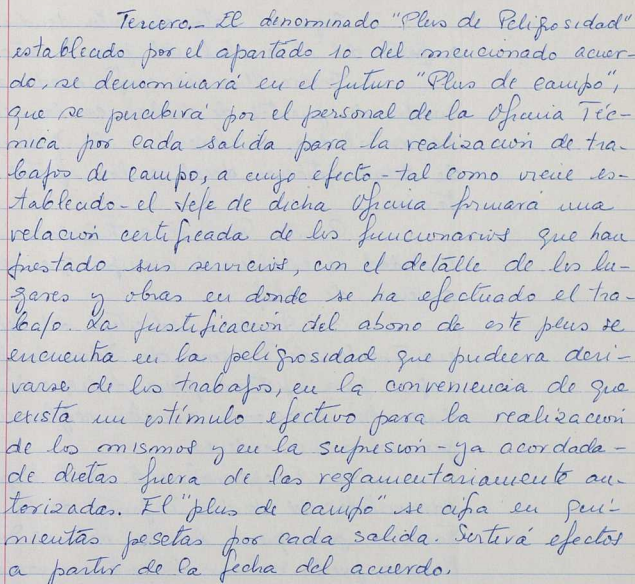 Tercero.- El denominado "Plus de Peligrosidad"
establecido por el apartado 10 del mencionado acuer-
do, se denominará en el futuro "Plus de campo",
que se percibirá por el personal de la Oficina Téc-
nica por cada salida para la realización de tra-
bajos de campo, a cuyo efecto - tal como viene es-
tablecido - el Jefe de dicha Oficina firmará una
relación certificada de los funcionarios que han
prestado sus servicios, con el detalle de los lu-
gares y obras en donde se ha efectuado el tra-
bajo. La justificación del abono de este plus se
encuentra en la peligrosidad que pudiera deri-
varse de los trabajos, en la conveniencia de que
exista un estímulo efectivo para la realización
de los mismos y en la supresión - ya acordada -
de dietas fuera de las reglamentariamente au-
torizadas. El "plus de campo" se cifra en qui-
nientas pesetas por cada salida. Surtirá efectos
a partir de la fecha del acuerdo.